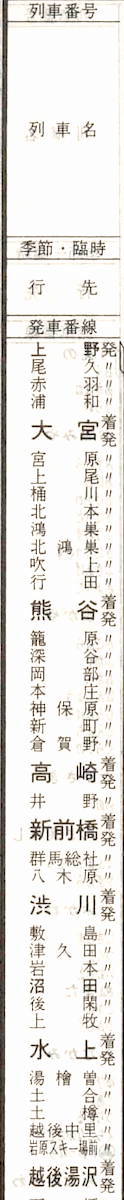 列車番号
列車名
季節・臨時
行先
発車番線
上野発
尾久〃
赤羽〃
浦和〃
大宮着発
宮原〃
上尾〃
桶川〃
北本〃
鴻巣〃
北鴻巣〃
吹上〃
行田〃
熊谷着発
籠原〃
深谷〃
岡部〃
本庄〃
神保原〃
新町〃
倉賀野〃
高崎着発
井野〃
新前橋着発
群馬総社〃
八木原〃
渋川着発
敷島〃
津久田〃
岩本〃
沼田〃
後閑〃
上牧〃
水上着発
湯檜曽〃
土合〃
土樽〃
越後中里〃
岩原スキー場前〃
越後湯沢着発